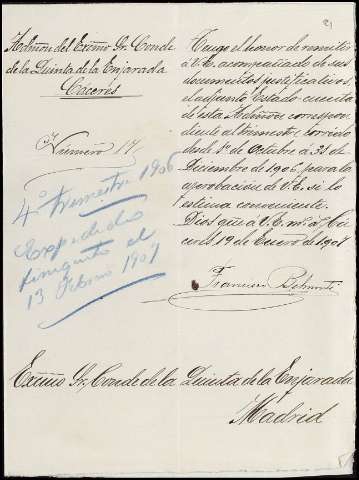 2)
Admon del Excmo Sr. Conde
de la Quinta de la Enjarada
Cáceres
Número 17.
4º trimestre 1906
Expedido
finiquito el
13 Febrero 1907
Tengo el honor de remitir
á V.E. acompañado de sus
documentos justificativos,
el adjunto Estado-cuenta
de esta Admon correspon-
diente al trimestre corrido
desde 1º de Octubre á 31 de
Diciembre de 1906, para la
aprobación de V.E. si lo
estima conveniente.
Dios gue á V.E. ms as Cá-
ceres 19 de Enero de 1907
Francisco Belmonte
Excmo Sr. Conde de la Quinta de la Enjarada
Madrid